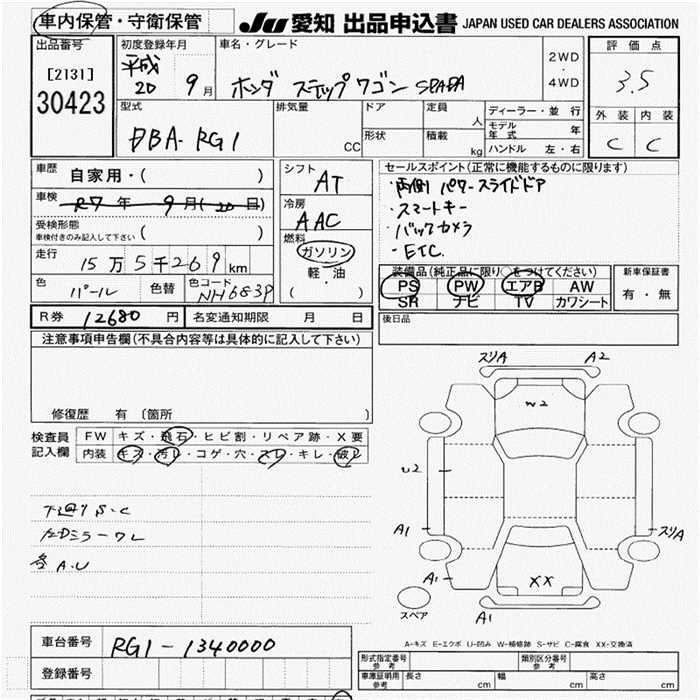 車内保管・守衛保管
JU 愛知 出品申込書 JAPAN USED CAR DEALERS ASSOCIATION
出品番号
[2131]
30423
初度登録年月
平成
20 9月
車名・グレード
ホンダ ステップワゴン SPADA
2WD
・
4WD
評価点
3.5
外装 内装
C C
型式
DBA-RG1
排気量
CC
ドア
形状
定員
人
積載
kg
ディーラー・並行
モデル年式 年
ハンドル 左・右
車歴
自家用・( )
車検
R7年 9月(20日)
受検形態
車検付きのみ記入して下さい ( )
走行
15万5千269km
色
パール
色替
色コード
NH683P
シフト
AT
冷房
AAC
燃料
ガソリン
軽・油
( )
セールスポイント(正常に機能するものに限ります)
・両側パワースライドドア
・スマートキー
・バックカメラ
・ETC.
装備品(純正品に限り○をつけてください)
PS PW エアB AW
SR ナビ TV カワシート
新車保証書
有・無
R券 12680円
名変通知期限 月 日
後日品
注意事項申告欄(不具合内容等は具体的に記入して下さい)
修復歴 有 〔箇所 〕
検査員
記入欄
FW キズ・飛石・ヒビ割・リペア跡・X要
内装 キズ・汚レ・コゲ・穴・スレ・キレ・破レ
下廻りS.C
左Dミラーワレ
各A.U
スリA A2
W2
U2
A1 スリA
A1 XX
スペア A1
A-キズ E-エクボ U-凹み W-補修跡 S-サビ C-腐食 XX-交換済
車台番号 RG1-1340000
登録番号
形式指定番号
参考
類別区分番号
参考
車庫証明用
参考
長さ cm 幅 cm 高さ cm